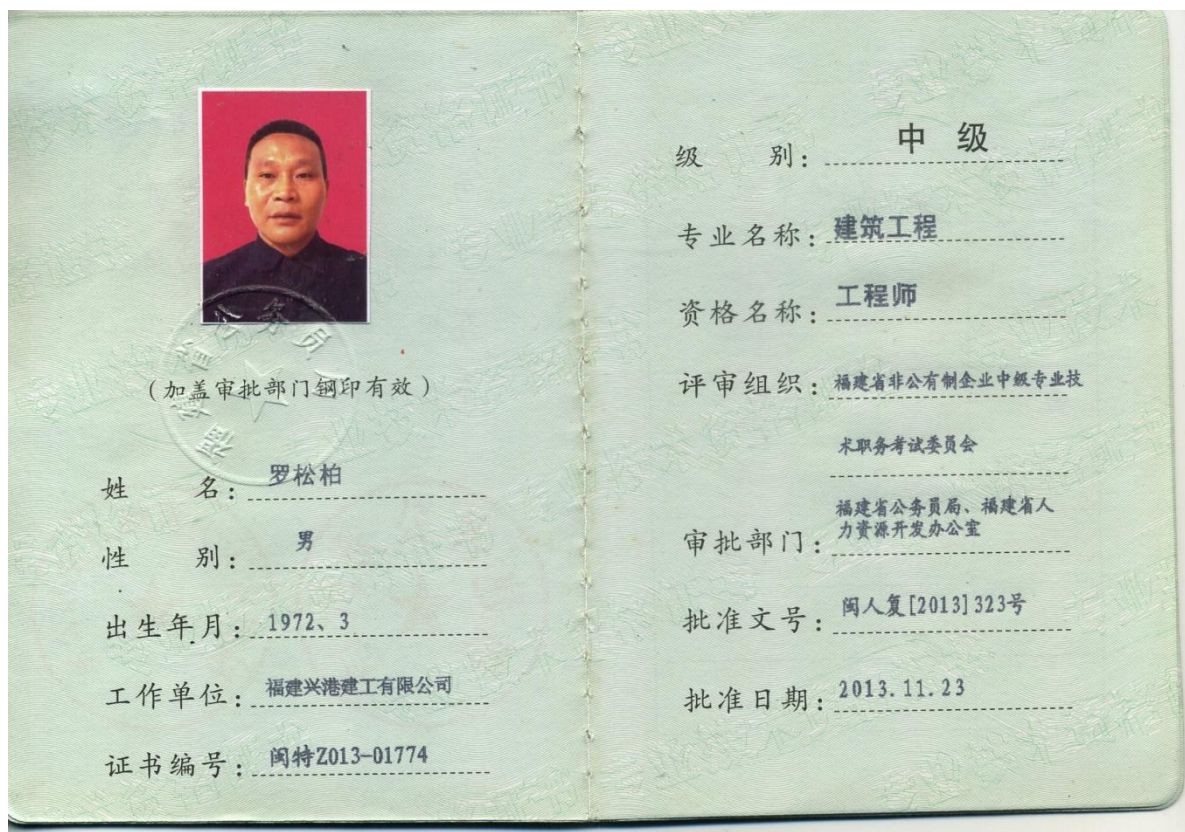 福建省公务员
(加盖审批部门钢印有效)
姓 名：罗松柏
性 别：男
出生年月：1972、3
工作单位：福建兴港建工有限公司
证书编号：闽特Z013-01774
级 别：中 级
专业名称：建筑工程
资格名称：工程师
评审组织：福建省非公有制企业中级专业技
术职务考试委员会
审批部门：福建省公务员局、福建省人
力资源开发办公室
批准文号：闽人复[2013]323号
批准日期：2013.11.23